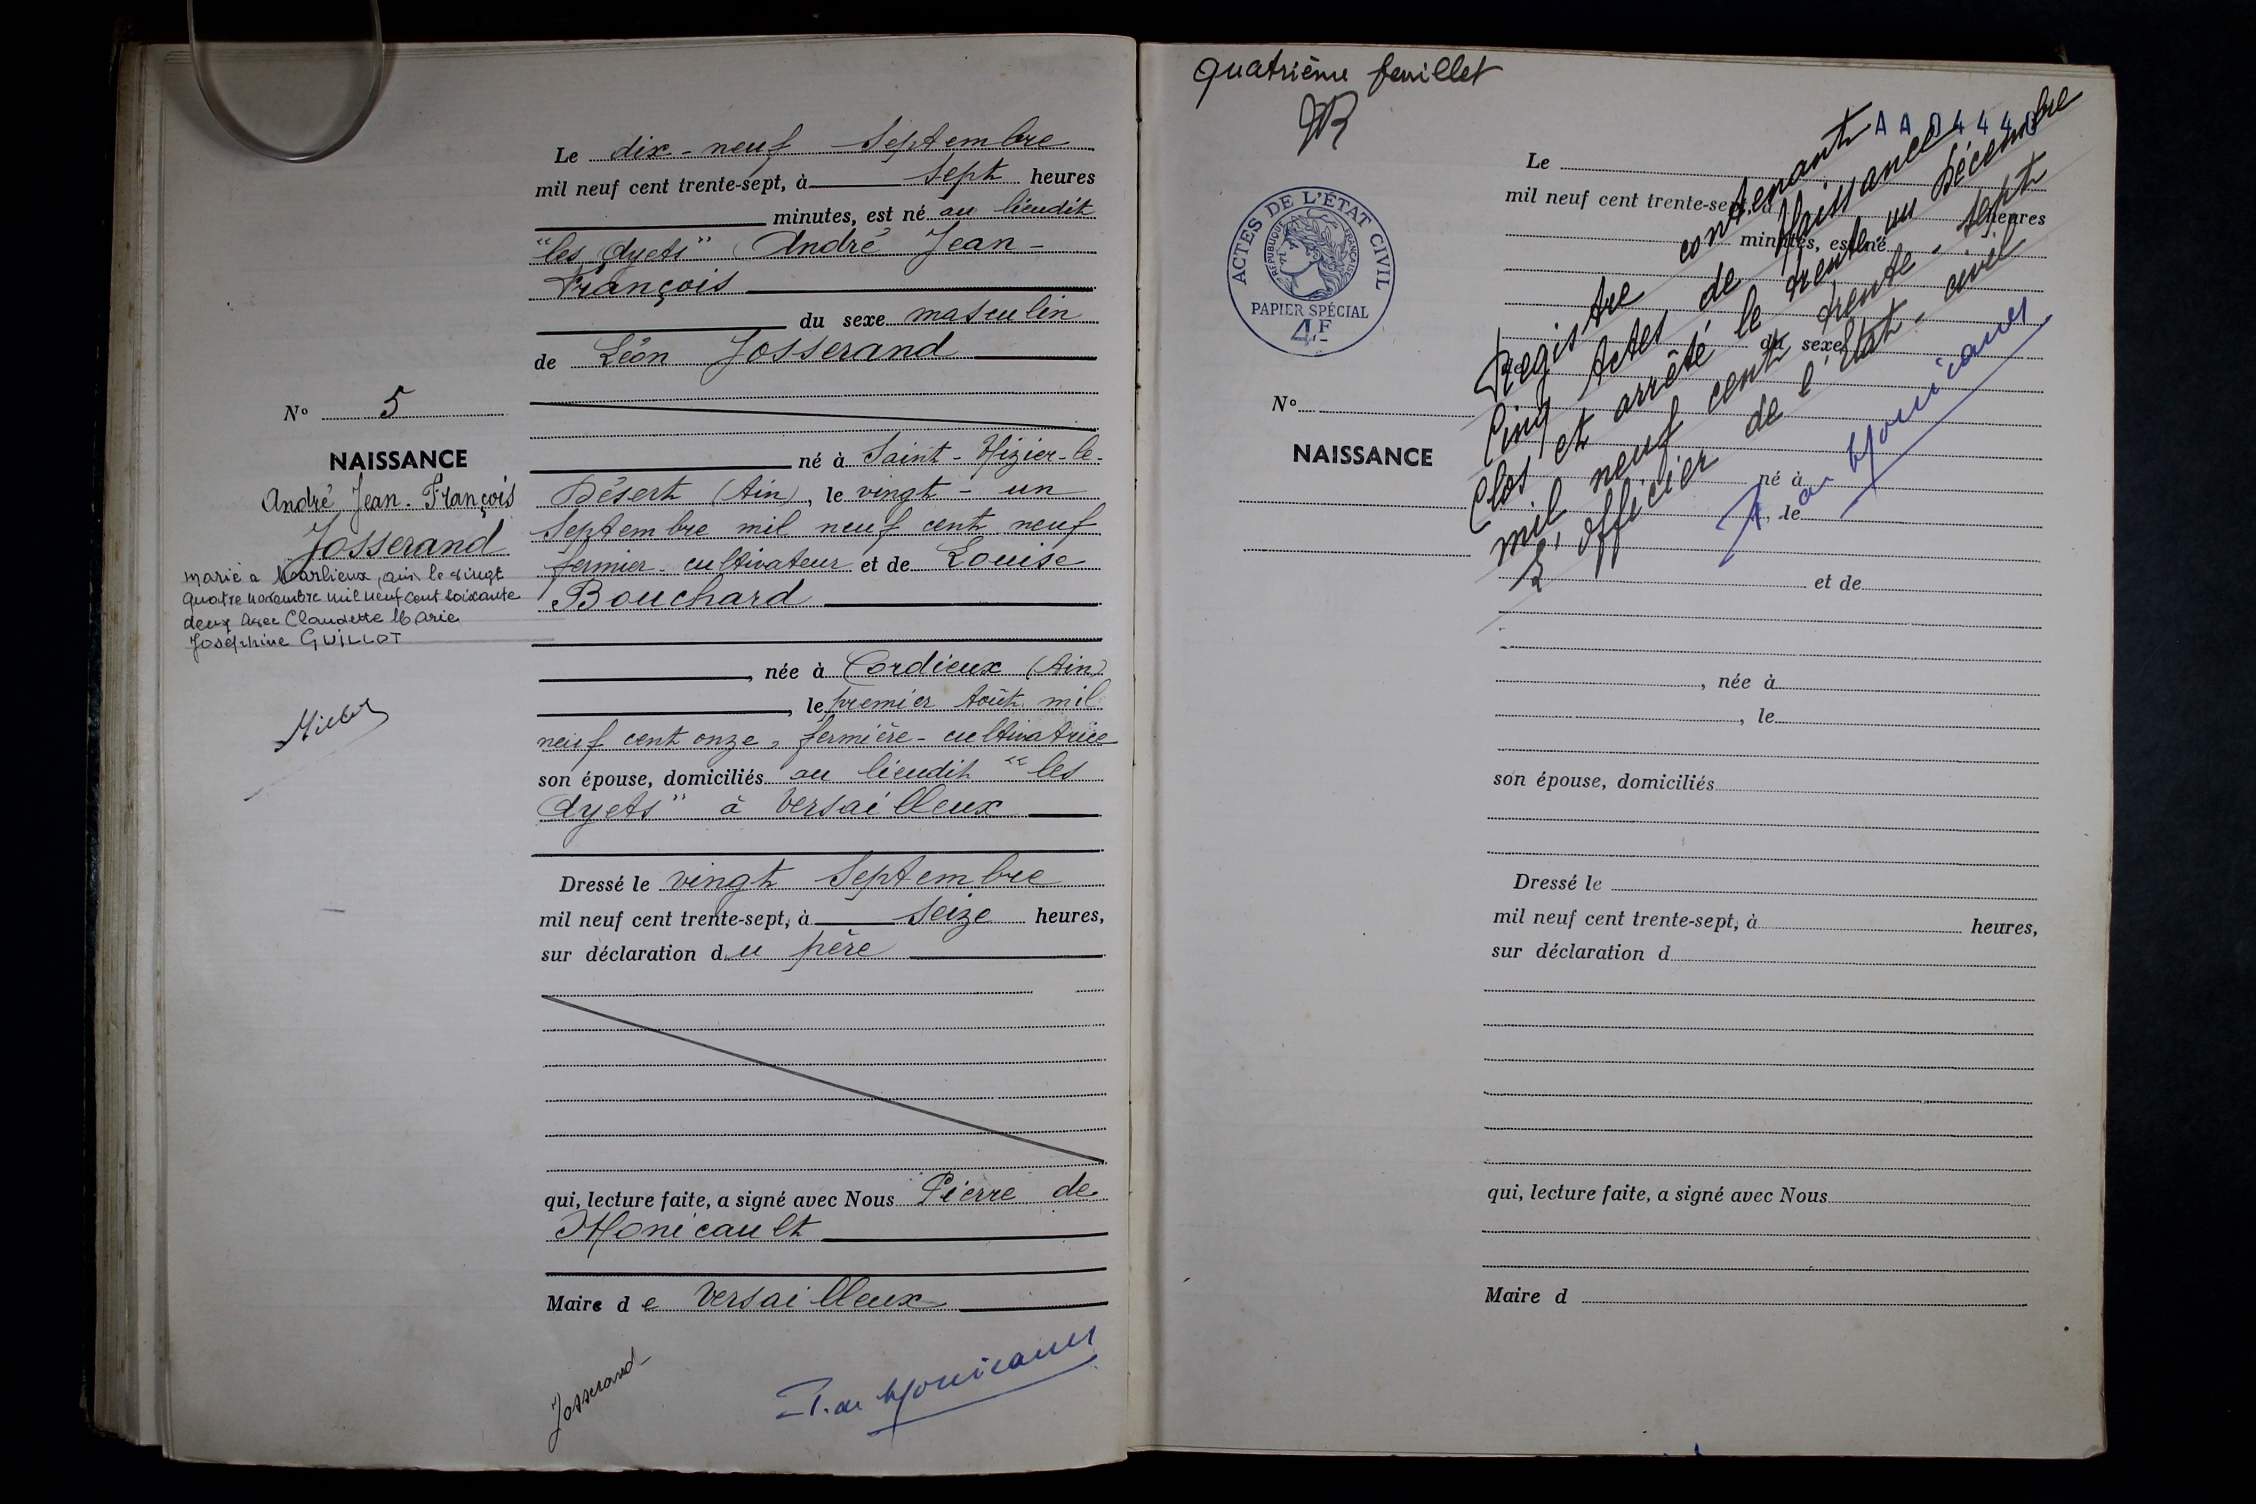 Le dix-neuf Septembre
mil neuf cent trente-sept, à sept heures
minutes, est né au lieudit
"les dyets" André Jean-
François
du sexe masculin
de Léon Josserand
N° 5
né à Saint-Nizier-le-
NAISSANCE
Désert (Ain), le vingt-un
André Jean-François
Septembre mil neuf cent neuf
Josserand
fermier-cultivateur et de Louise
Bouchard
marié à Marlieux, ain le vingt
quatre novembre mil neuf cent soixante
deux avec Claudette Marie
Joséphine GUILLOT
née à Cordieux (Ain)
, le premier Août mil
neuf cent onze, fermière-cultivatrice
son épouse, domiciliés au lieudit "les
dyets" à Versailleux
Dressé le vingt Septembre
mil neuf cent trente-sept, à seize heures,
sur déclaration du père
qui, lecture faite, a signé avec Nous Pierre de
Monicault
Maire de Versailleux
Josserand
P. de Monicault
quatrième feuillet
AA 04440
ACTES DE L'ÉTAT CIVIL
RÉPUBLIQUE FRANÇAISE
PAPIER SPÉCIAL
4F
Registre contenant
Cinq Actes de Naissance
Clos et arrêté le trente un Décembre
mil neuf cent trente-sept
L'officier de l'Etat-civil
P. de Monicault
Le
mil neuf cent trente-sept, à heures
minutes, est né
du sexe
de
N°
NAISSANCE
né à
, le
et de
, née à
, le
son épouse, domiciliés
Dressé le
mil neuf cent trente-sept, à heures,
sur déclaration d
qui, lecture faite, a signé avec Nous
Maire d